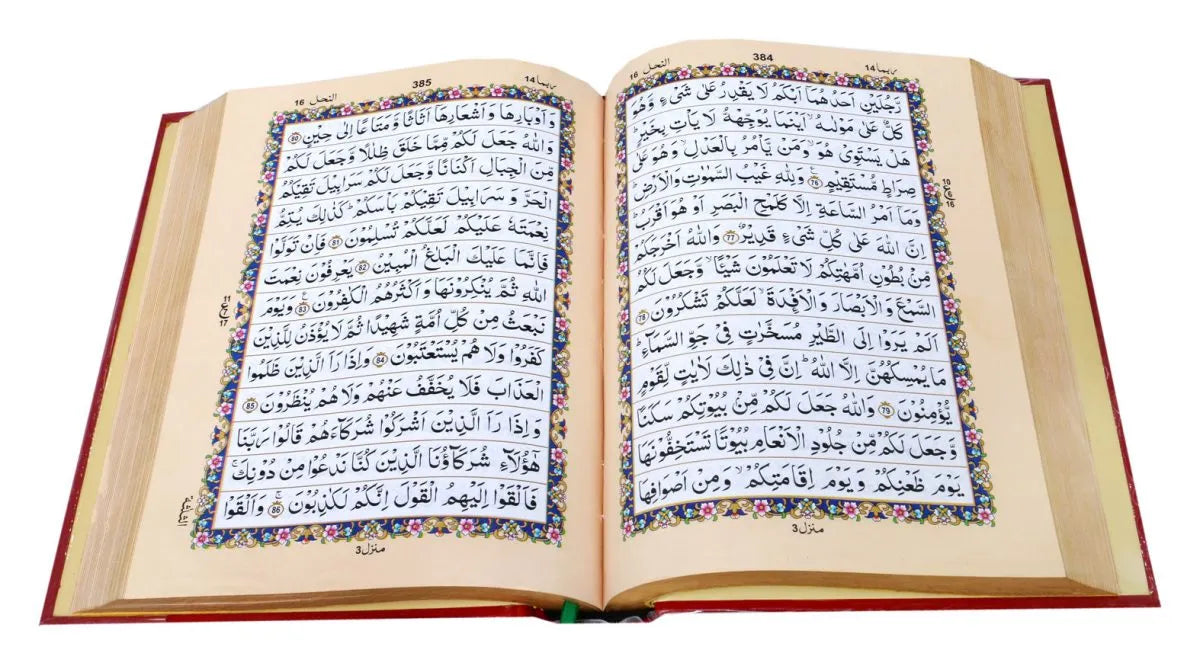 النحل ١٦
384
ربما ١٤
رَّجُلَيْنِ اَحَدُهُمَاۤ اَبْكَمُ لَا يَقْدِرُ عَلٰى شَیْءٍ وَّهُوَ
كَلٌّ عَلٰى مَوْلٰىهُ ۙ اَيْنَمَا يُوَجِّهْهُّ لَا يَاْتِ بِخَيْرٍ ؕ
هَلْ يَسْتَوِیْ هُوَ ۙ وَمَنْ يَّاْمُرُ بِالْعَدْلِ ۙ وَهُوَ عَلٰى
صِرَاطٍ مُّسْتَقِيْمٍ 76 وَلِلّٰهِ غَيْبُ السَّمٰوٰتِ وَالْاَرْضِ ؕ
وَمَاۤ اَمْرُ السَّاعَةِ اِلَّا كَلَمْحِ الْبَصَرِ اَوْ هُوَ اَقْرَبُ ؕ
اِنَّ اللّٰهَ عَلٰى كُلِّ شَیْءٍ قَدِيْرٌ 77 وَاللّٰهُ اَخْرَجَكُمْ
مِّنْۢ بُطُوْنِ اُمَّهٰتِكُمْ لَا تَعْلَمُوْنَ شَيْـًٔا ۙ وَّجَعَلَ لَكُمُ
السَّمْعَ وَالْاَبْصَارَ وَالْاَفْـِٕدَةَ ۙ لَعَلَّكُمْ تَشْكُرُوْنَ 78
اَلَمْ يَرَوْا اِلَى الطَّيْرِ مُسَخَّرٰتٍ فِیْ جَوِّ السَّمَآءِ ؕ
مَا يُمْسِكُهُنَّ اِلَّا اللّٰهُ ؕ اِنَّ فِیْ ذٰلِكَ لَاٰيٰتٍ لِّقَوْمٍ
يُّؤْمِنُوْنَ 79 وَاللّٰهُ جَعَلَ لَكُمْ مِّنْۢ بُيُوْتِكُمْ سَكَنًا
وَّجَعَلَ لَكُمْ مِّنْ جُلُوْدِ الْاَنْعَامِ بُيُوْتًا تَسْتَخِفُّوْنَهَا
يَوْمَ ظَعْنِكُمْ وَيَوْمَ اِقَامَتِكُمْ ۙ وَمِنْ اَصْوَافِهَا
10
ع
16
منزل ٣
النحل 16
385
ربما 14
وَاَوْبَارِهَا وَاَشْعَارِهَاۤ اَثَاثًا وَّمَتَاعًا اِلٰى حِيْنٍ 80
وَاللّٰهُ جَعَلَ لَكُمْ مِّمَّا خَلَقَ ظِلٰلًا وَّجَعَلَ لَكُمْ
مِّنَ الْجِبَالِ اَكْنَانًا وَّجَعَلَ لَكُمْ سَرَابِيْلَ تَقِيْكُمُ
الْحَرَّ وَسَرَابِيْلَ تَقِيْكُمْ بَاْسَكُمْ ؕ كَذٰلِكَ يُتِمُّ
نِعْمَتَهٗ عَلَيْكُمْ لَعَلَّكُمْ تُسْلِمُوْنَ 81 فَاِنْ تَوَلَّوْا
فَاِنَّمَا عَلَيْكَ الْبَلٰغُ الْمُبِيْنُ 82 يَعْرِفُوْنَ نِعْمَتَ
اللّٰهِ ثُمَّ يُنْكِرُوْنَهَا وَاَكْثَرُهُمُ الْكٰفِرُوْنَ 83 وَيَوْمَ
نَبْعَثُ مِنْ كُلِّ اُمَّةٍ شَهِيْدًا ثُمَّ لَا يُؤْذَنُ لِلَّذِيْنَ
كَفَرُوْا وَلَا هُمْ يُسْتَعْتَبُوْنَ 84 وَاِذَا رَاَ الَّذِيْنَ ظَلَمُوا
الْعَذَابَ فَلَا يُخَفَّفُ عَنْهُمْ وَلَا هُمْ يُنْظَرُوْنَ 85
وَاِذَا رَاَ الَّذِيْنَ اَشْرَكُوْا شُرَكَآءَهُمْ قَالُوْا رَبَّنَا
هٰۤؤُلَآءِ شُرَكَآؤُنَا الَّذِيْنَ كُنَّا نَدْعُوْا مِنْ دُوْنِكَ ۚ
فَاَلْقَوْا اِلَيْهِمُ الْقَوْلَ اِنَّكُمْ لَكٰذِبُوْنَ 86 وَاَلْقَوْا
11
ع
17
منزل 3